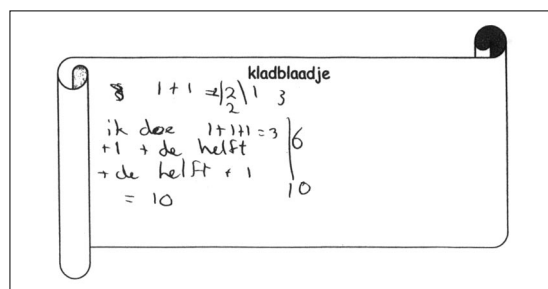 kladblaadje
1 + 1 = 2 \ 1 3
2
ik doe 1+1+1 = 3 | 6
+1 + de helft
+ de helft + 1
= 10
10